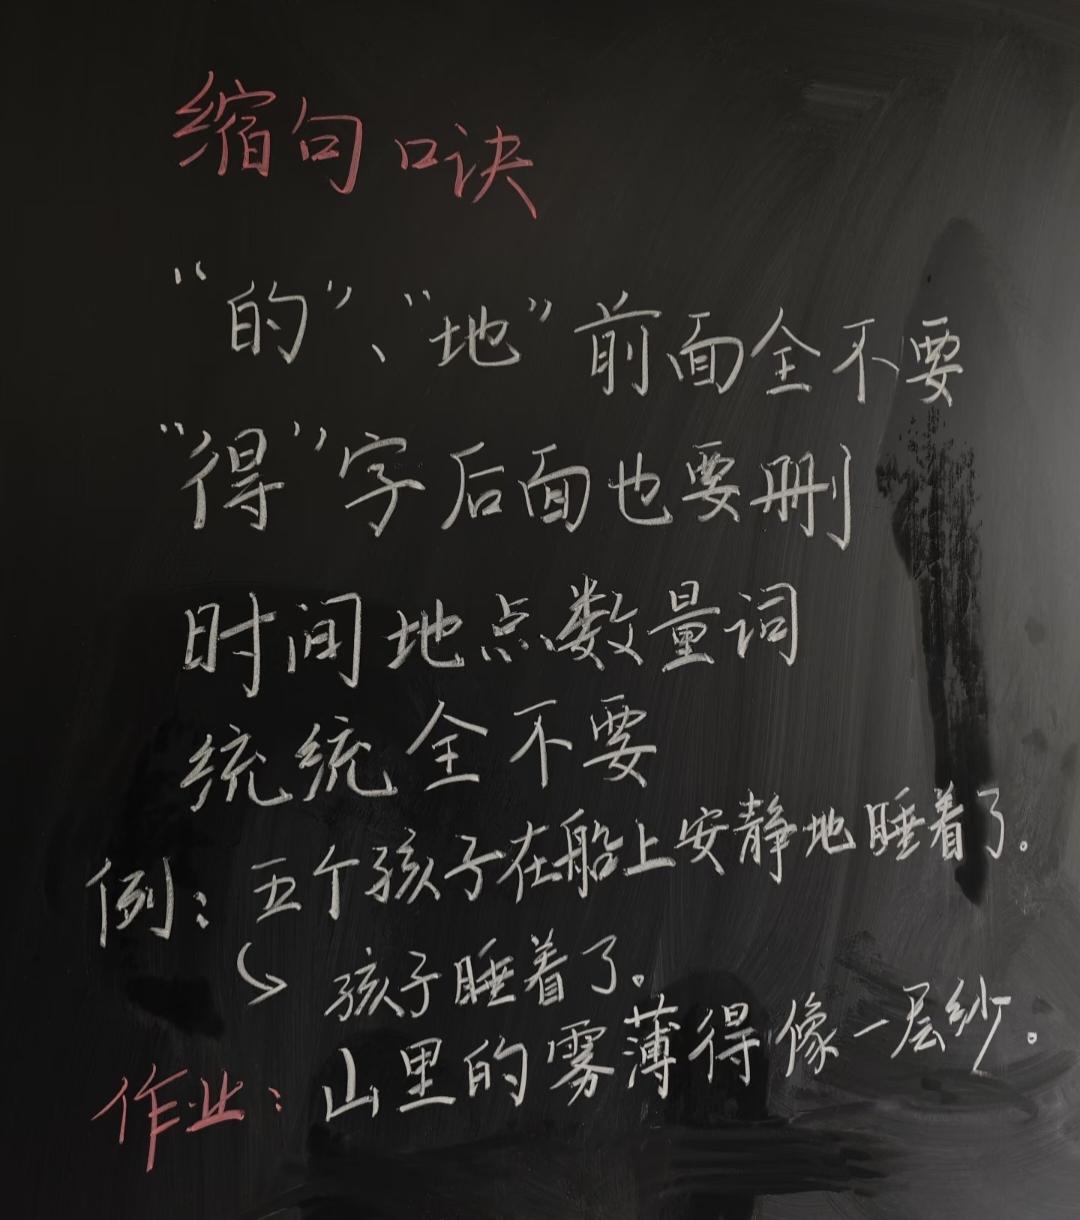 缩句口诀
“的”、“地”前面全不要
“得”字后面也要删
时间地点数量词
统统全不要
例：五个孩子在船上安静地睡着了。
孩子睡着了。
作业：山里的雾薄得像一层纱。